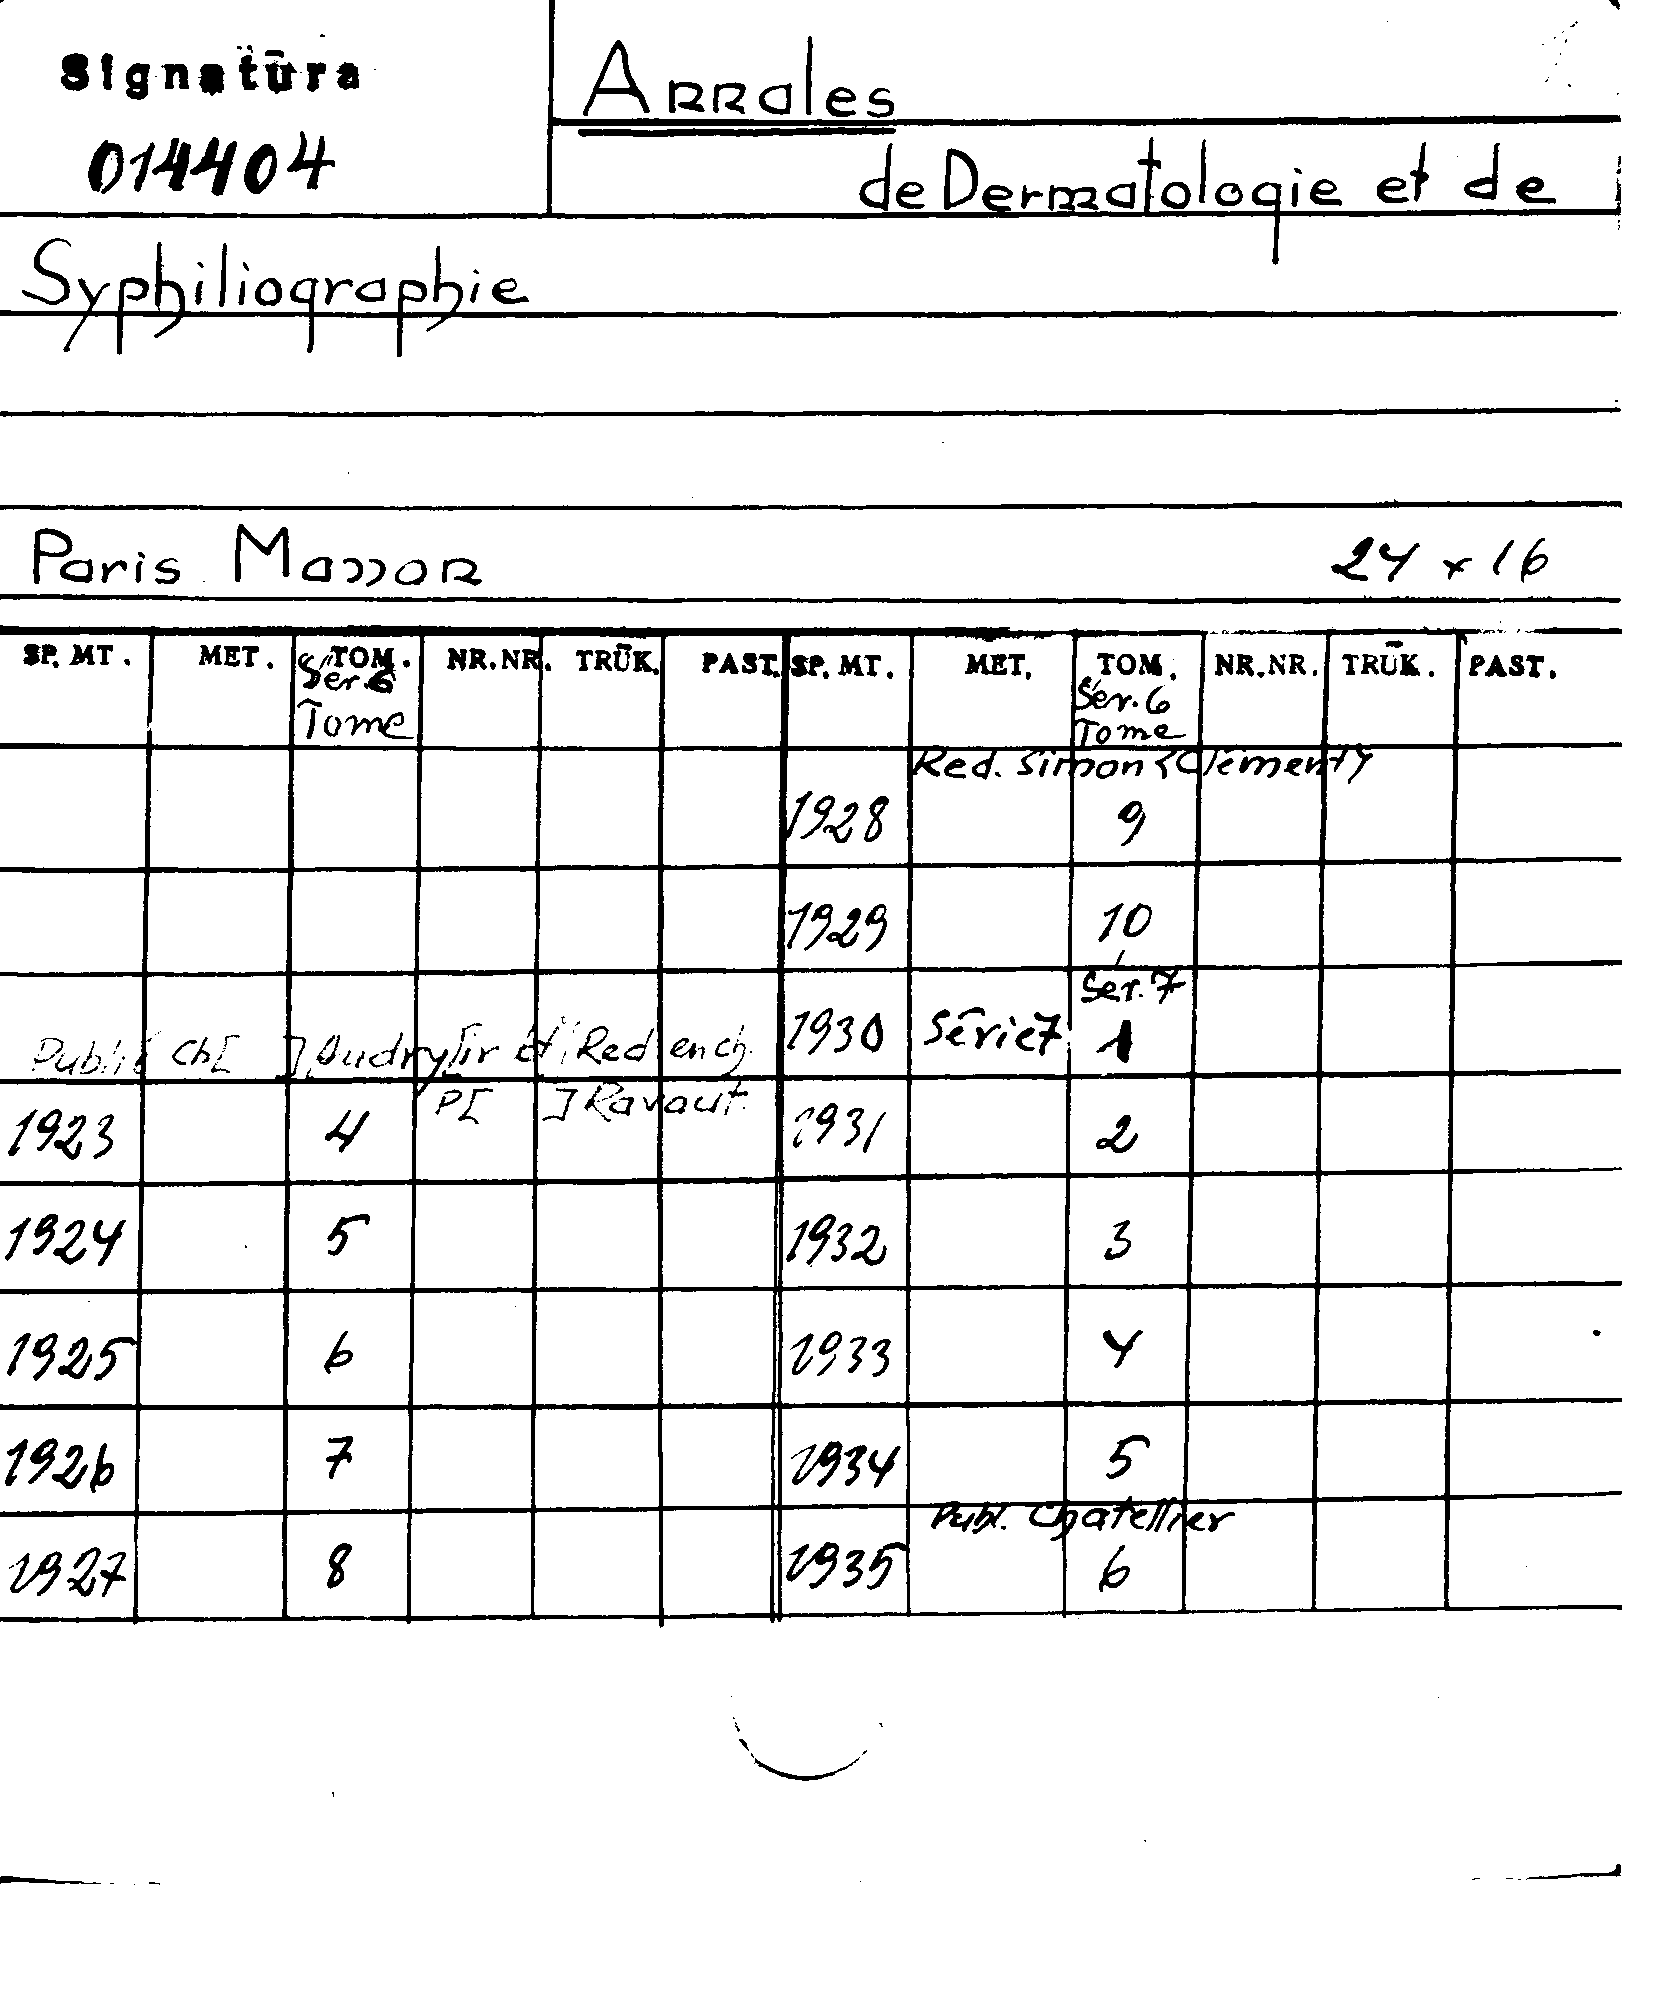 Signatūra
014404
Annales
de Dermatologie et de
Syphiliographie
Paris Masson 24 x 16
SP. MT. MET. TOM. NR.NR. TRŪK. PAST. SP. MT. MET. TOM. NR.NR. TRŪK. PAST.
Sér. 6 Sér. 6
Tome Tome
Red. Simon {Clément}
1928 9
1929 10
Sér. 7
Publié Ch[ ] Audry Dir et Red en ch. 1930 Série 7 1
P[ ] Ravaut.
1923 4 1931 2
1924 5 1932 3
1925 6 1933 4
1926 7 1934 5
Publ. Chatellier
1927 8 1935 6